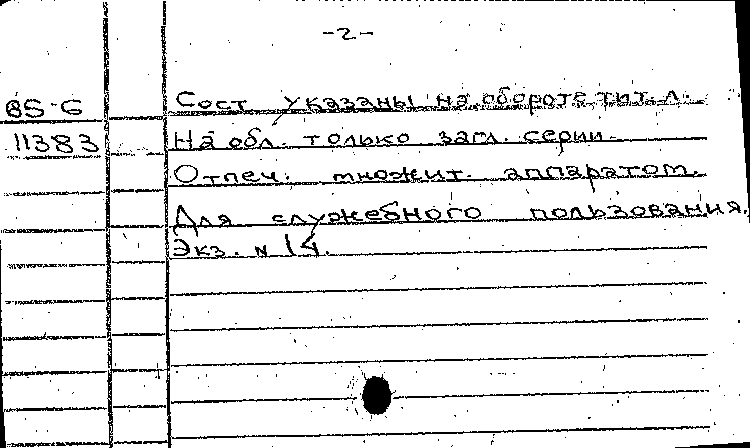 -2-
BS-6 Сост. указаны на обороте тит. л.
11383 На обл. только загл. серии.
Отпеч. множит. аппаратом.
Для служебного пользования.
Экз. N 14.